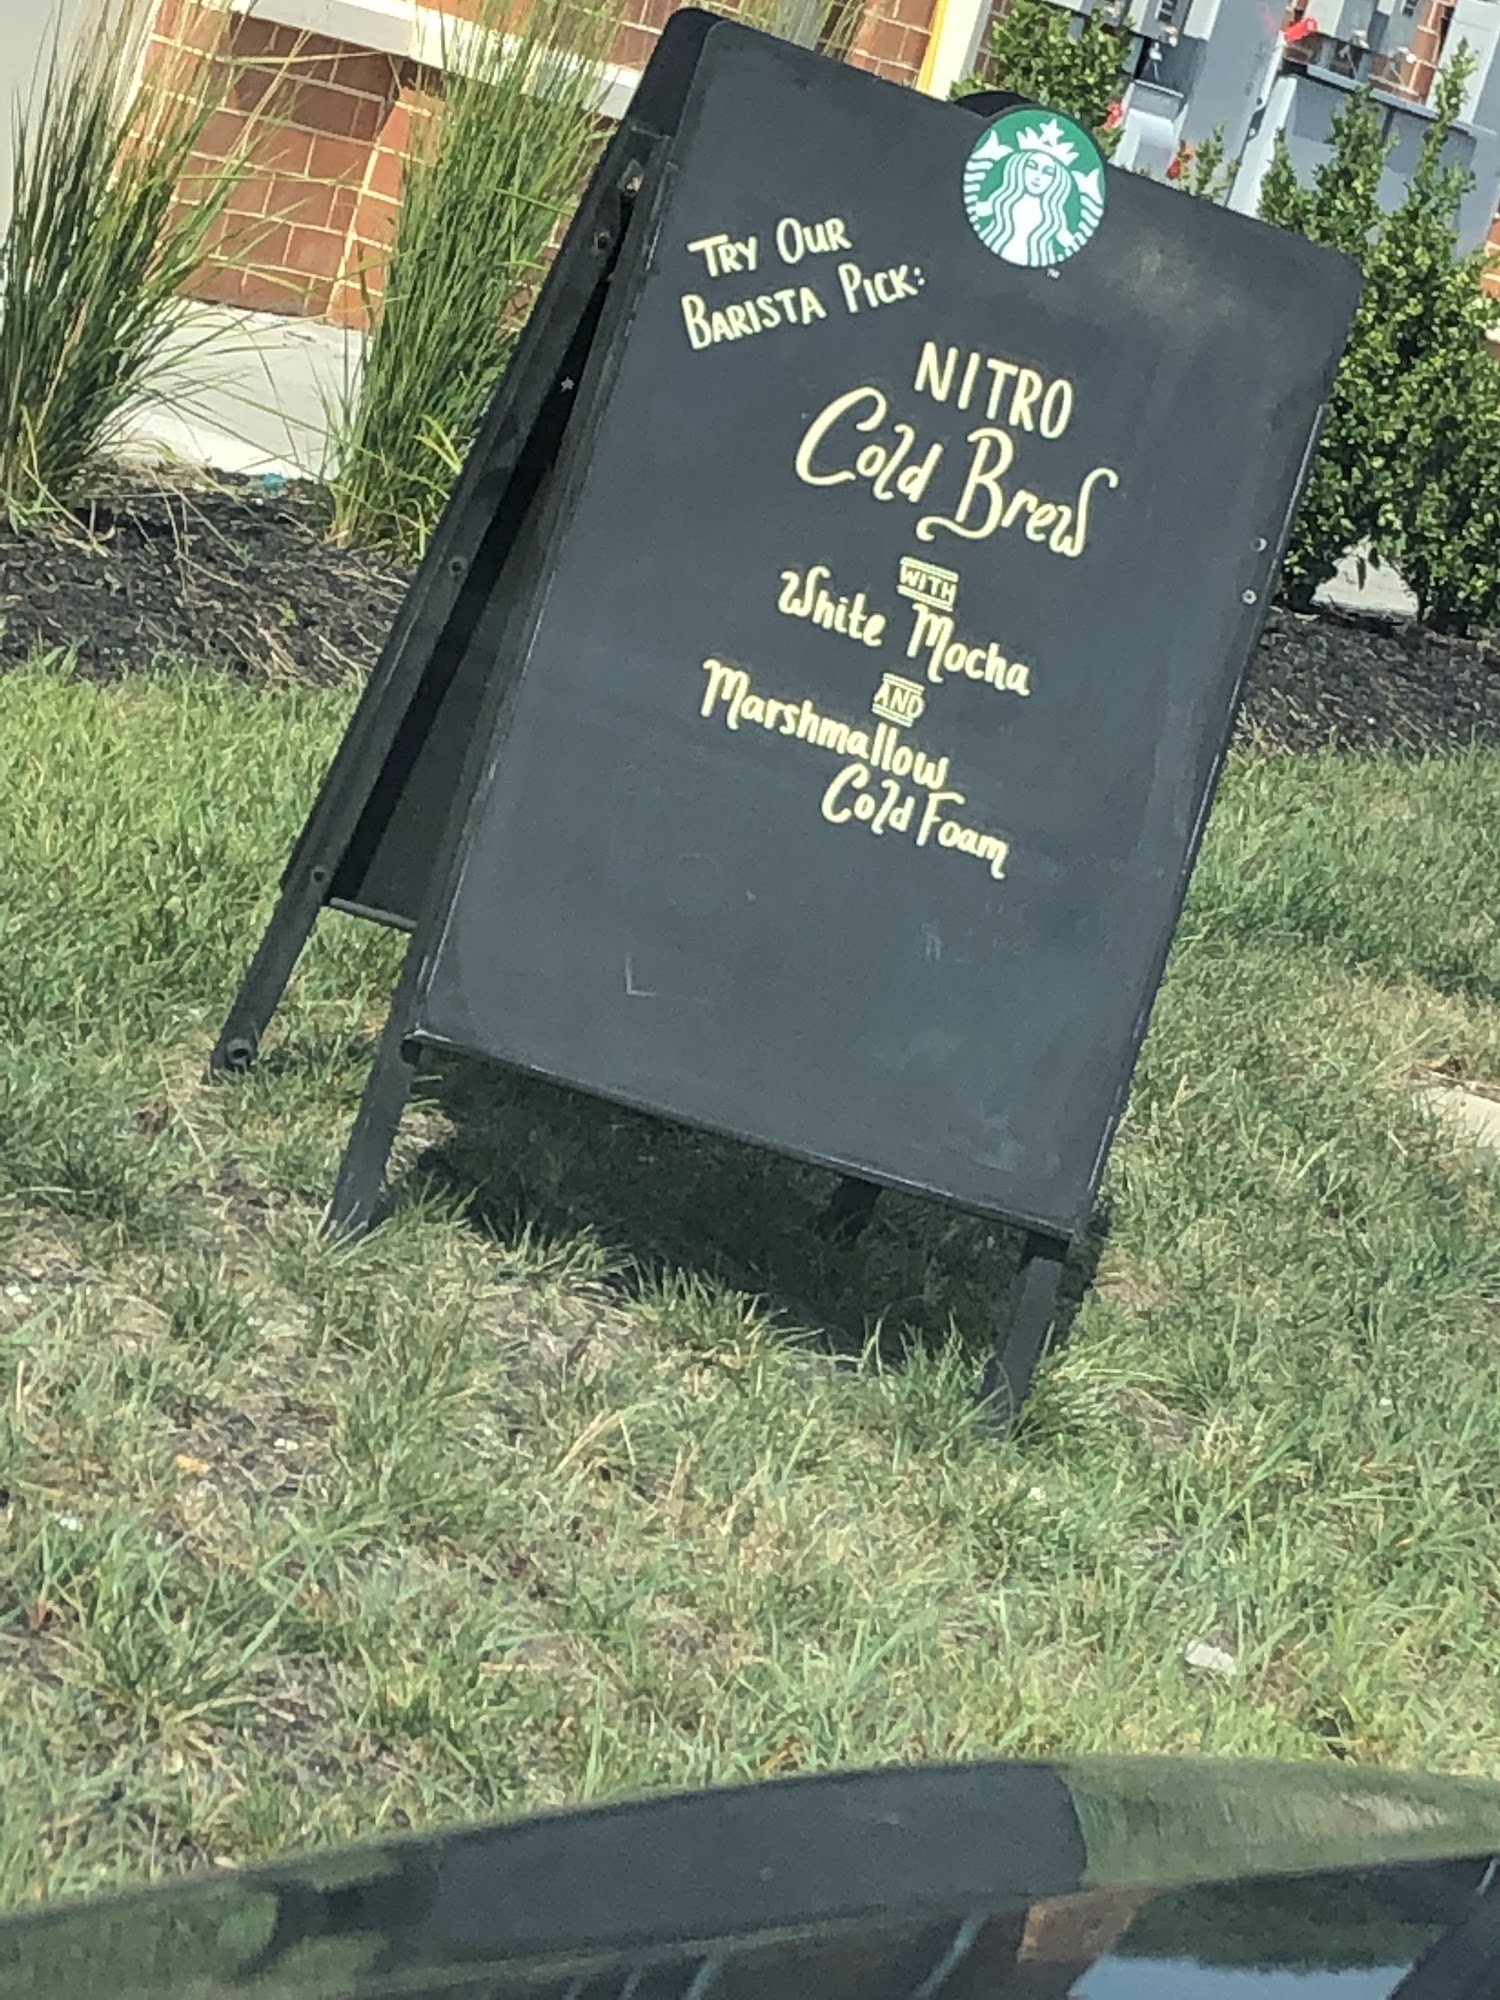 Try Our
Barista Pick:
NITRO
Cold Brew
WITH
White Mocha
AND
Marshmallow
Cold Foam
TM